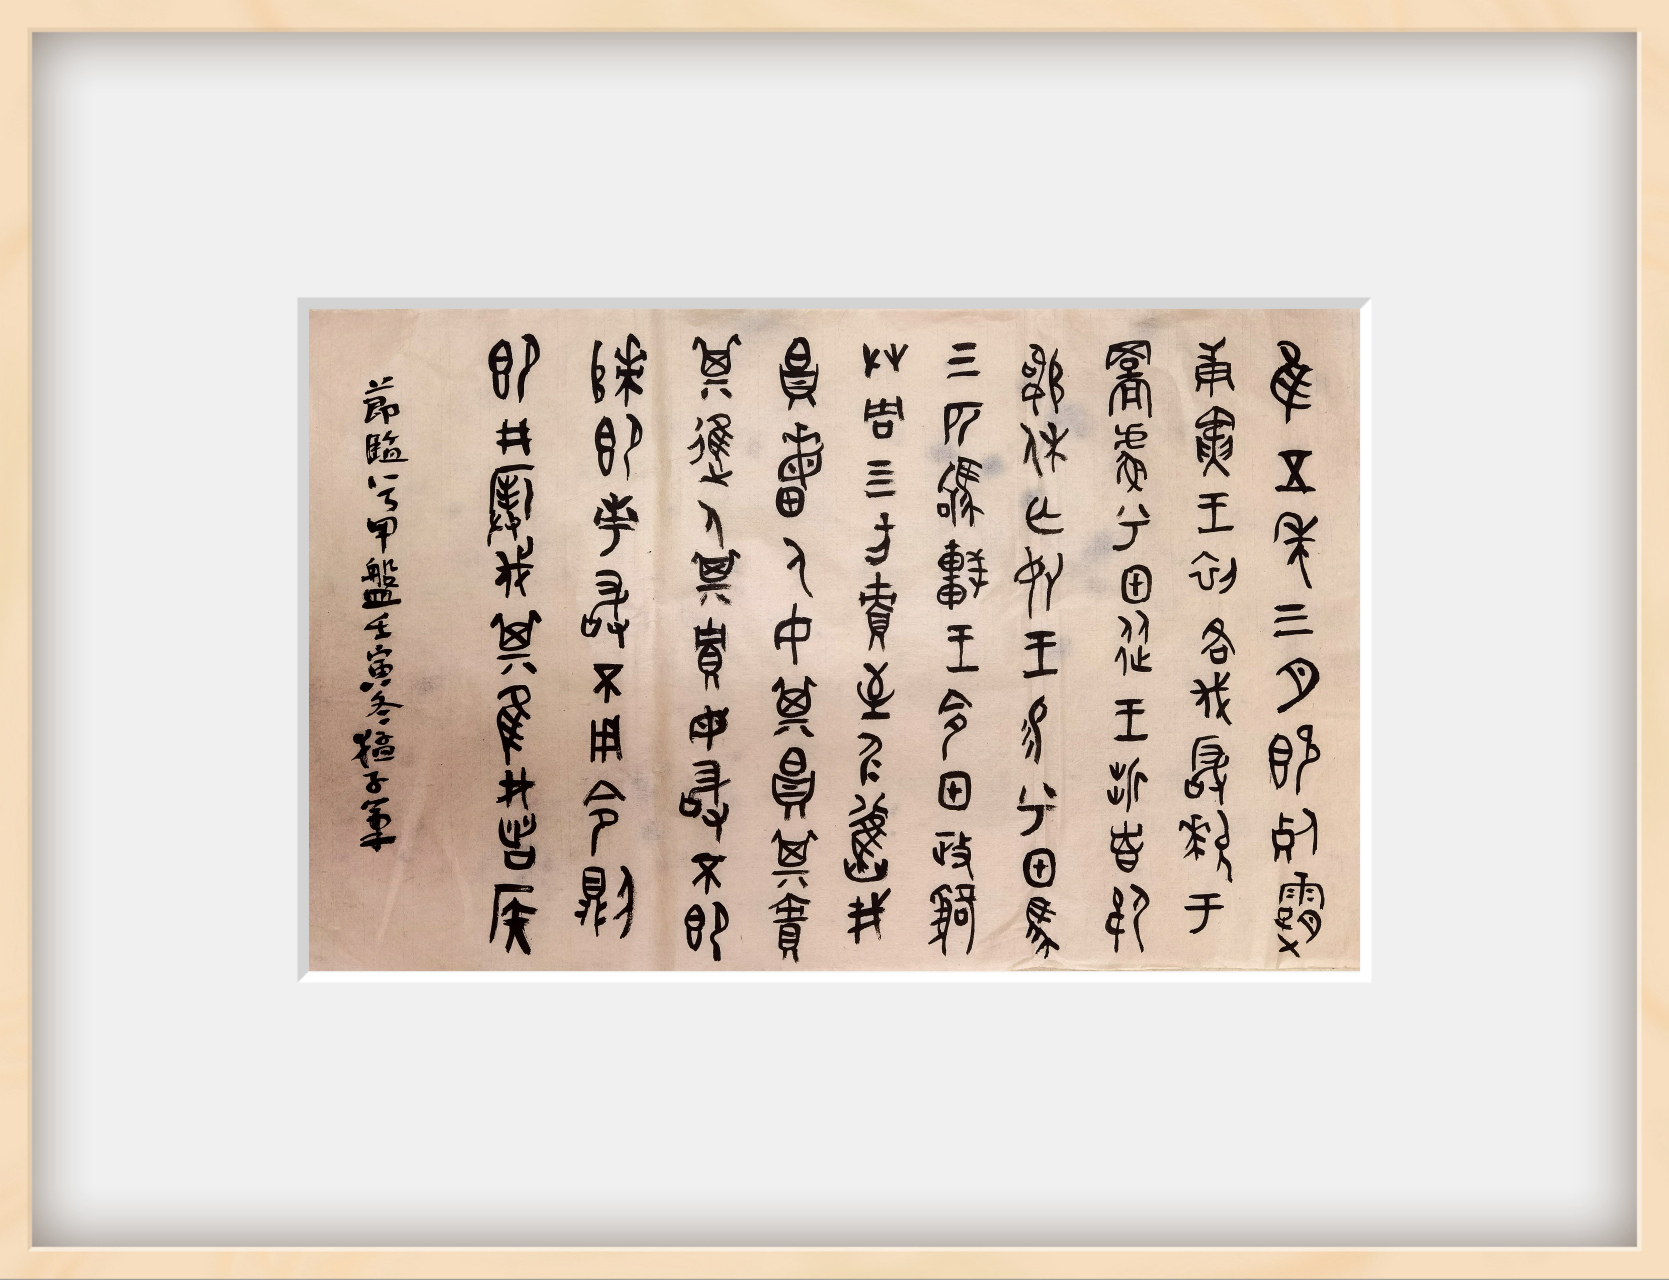 隹五年三月既死霸
庚寅王初各伐玁狁于
䣙𧇭兮甲從王折首執
訊休亡敃王易兮甲馬
四匹駒車王令甲政𤔲
成周四方責至
畮人毋其其責
其進人其貯毋敢不即
次即市敢不用令則
即井撲伐其隹我者侯
節臨兮甲盤壬寅冬猛子筆